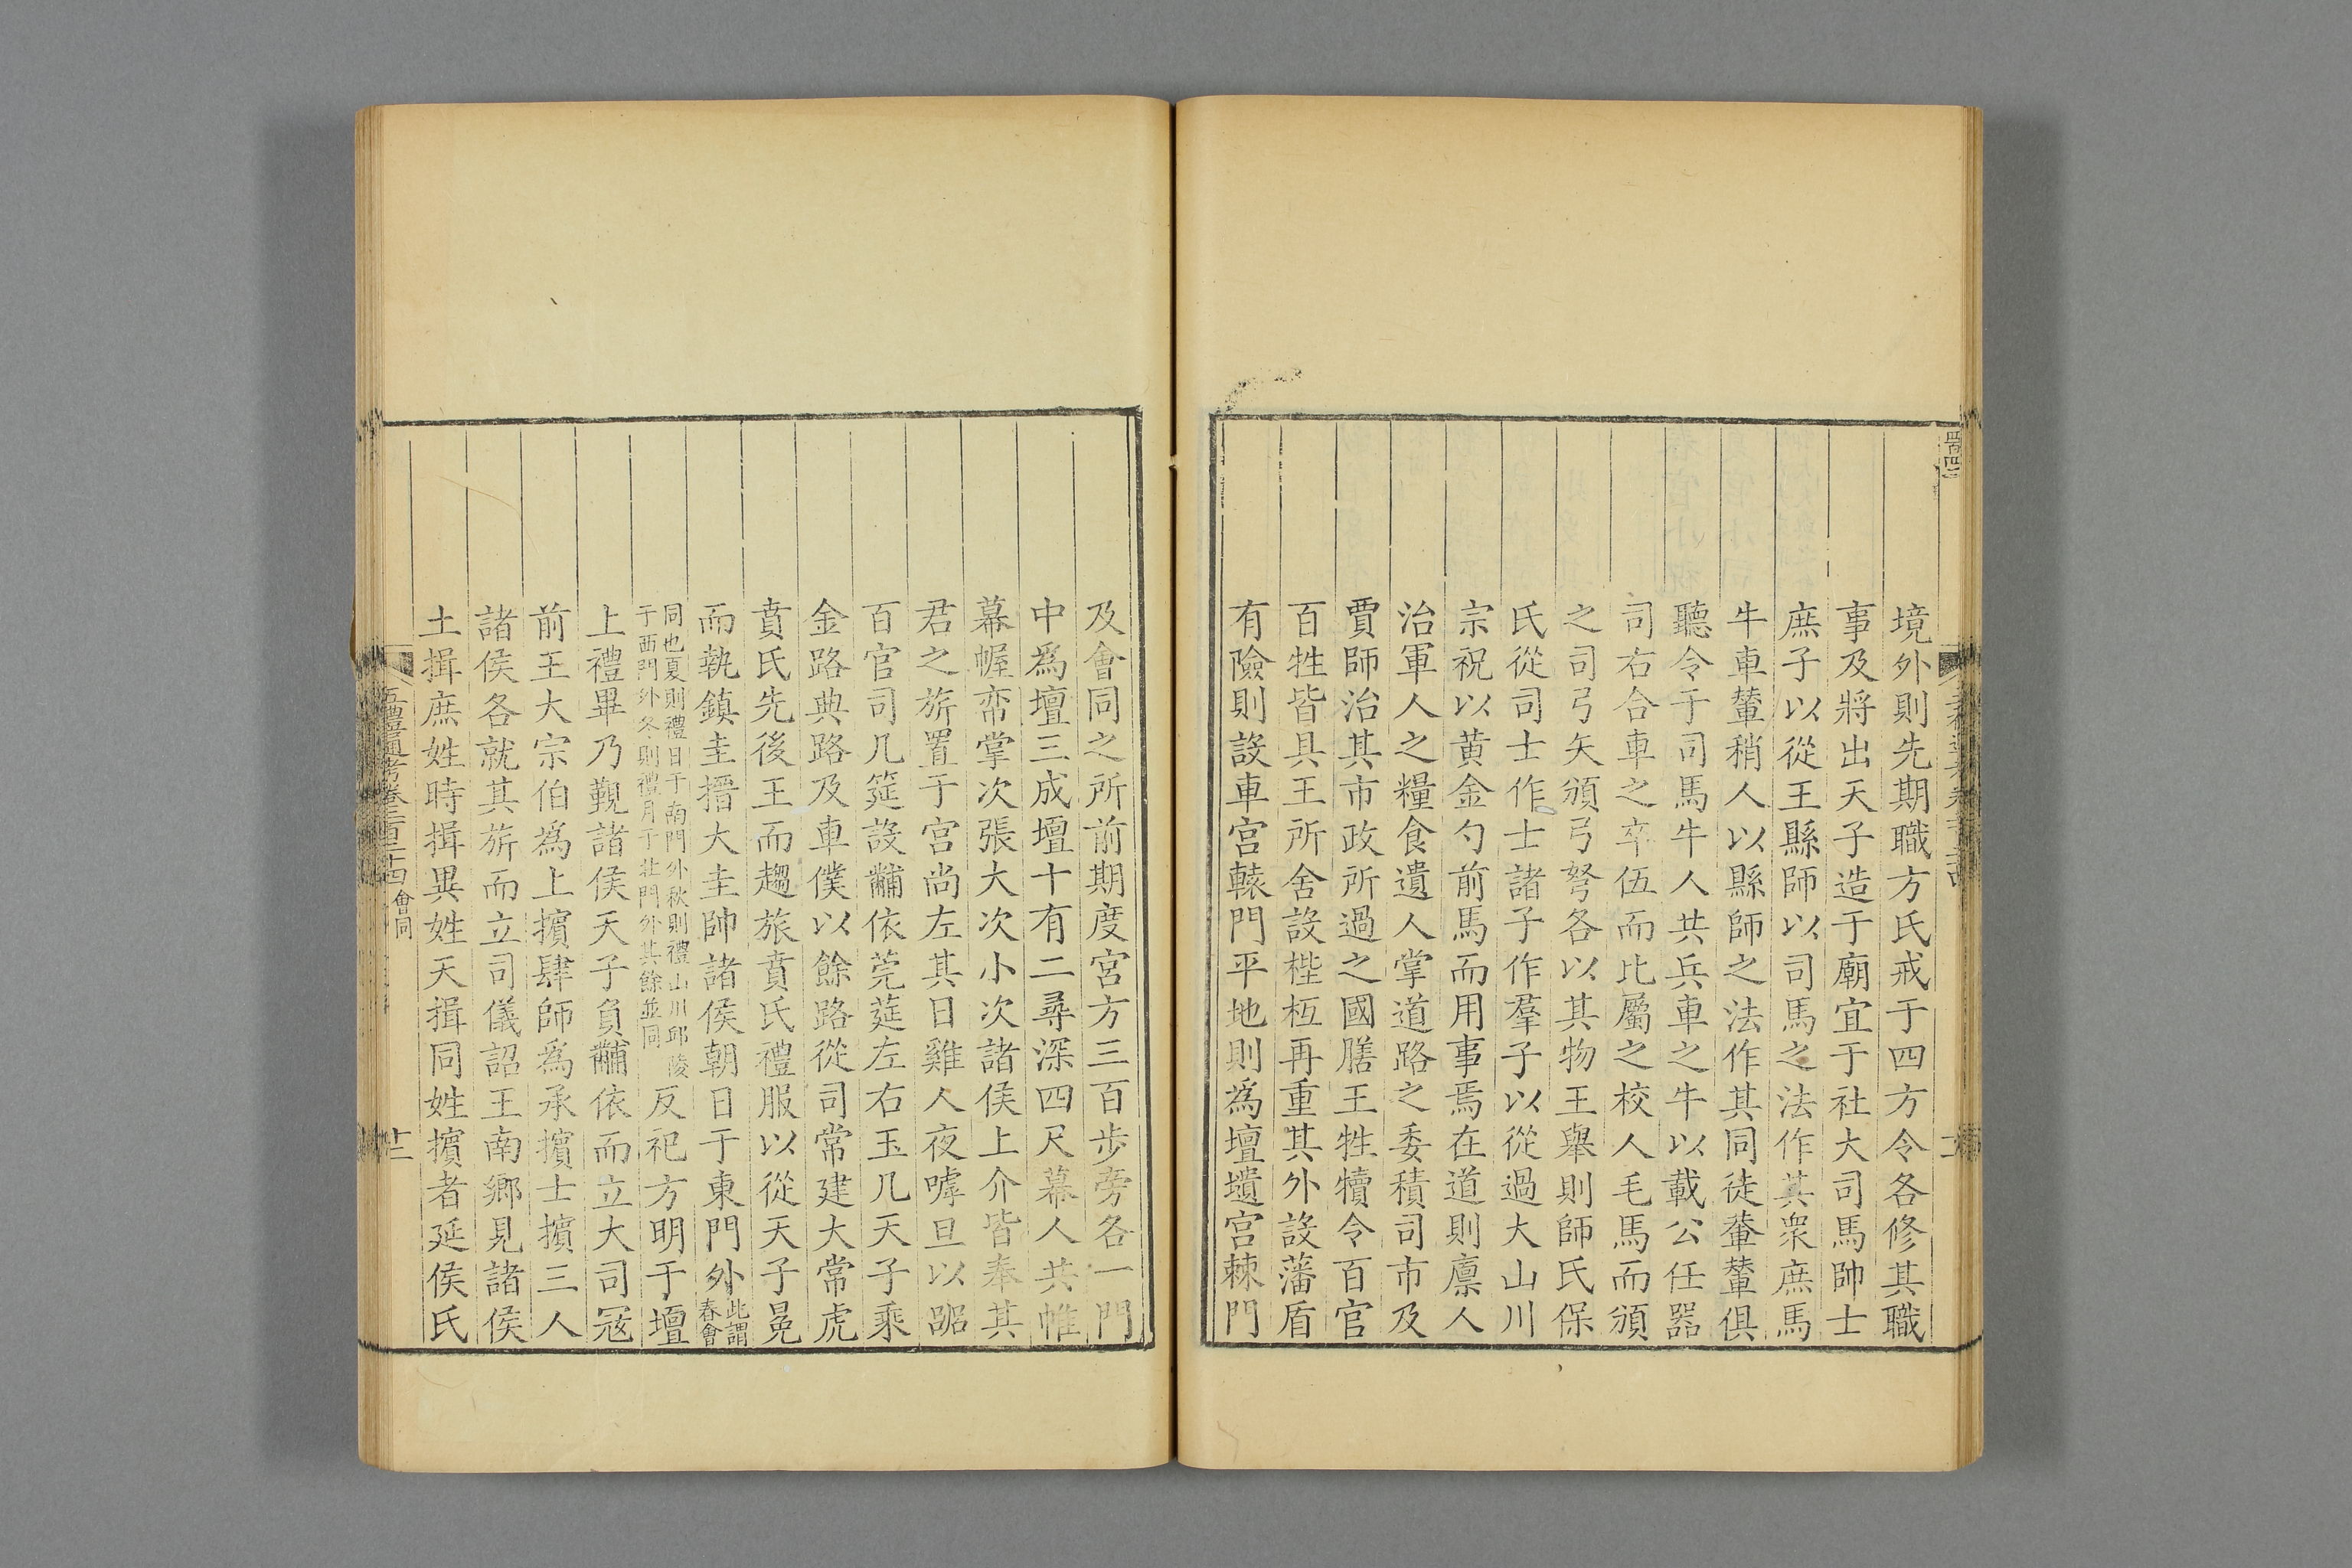 境外則先期職方氏戒于四方令各修其職
事及將出天子造于廟宜于社大司馬帥士
庶子以從王縣師以司馬之法作其衆庶馬
牛車輦稍人以縣師之法作其同徒輂輦俱
聽令于司馬牛人共兵車之牛以載公任器
司右合車之卒伍而比屬之校人毛馬而頒
之司弓矢頒弓弩各以其物王舉則師氏保
氏從司士作士諸子作羣子以從過大山川
宗祝以黄金勺前馬而用事焉在道則廪人
治軍人之糧食遺人掌道路之委積司市及
賈師治其市政所過之國膳王牲犢令百官
百牲皆具王所舍設梐枑再重其外設藩盾
有險則設車宮轅門平地則為壇壝宮棘門
及會同之所前期度宮方三百步旁各一門
中為壇三成壇十有二尋深四尺幕人共帷
幕幄帟掌次張大次小次諸侯上介皆奉其
君之旂置于宮尚左其日雞人夜嘑旦以嘂
百官司几筵設黼依莞筵左右玉几天子乘
金路典路及車僕以餘路從司常建大常虎
賁氏先後王而趨旅賁氏禮服以從天子冕
而執鎮圭搢大圭帥諸侯朝日于東門外此謂春會
同也夏則禮日于南門外秋則禮山川邱陵于西門外冬則禮月于北門外其餘並同反祀方明于壇
上禮畢乃覲諸侯天子負黼依而立大司冦
前王大宗伯為上擯肆師為承擯士擯三人
諸侯各就其旂而立司儀詔王南鄉見諸侯
土揖庶姓時揖異姓天揖同姓擯者延侯氏
五禮通考卷二百二十四 會同